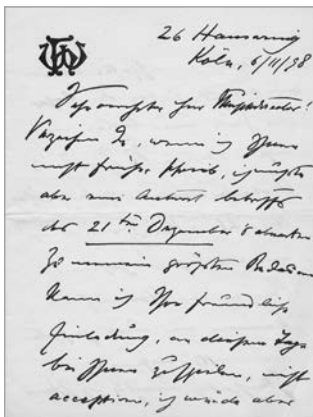 26 Hansaring
Köln, 6/11/98
Sehr geehrter Herr Musikdirector!
Verzeihen Sie, wenn ich Ihnen
nicht früher schrieb, ich mußte
aber eine Antwort betreffs
des 21ten Dezember abwarten
Zu meinem größten Bedauern
kann ich Ihre freundliche
Einladung, an diesem Tage
bei Ihnen zu spielen, nicht
acceptiren, ich würde aber